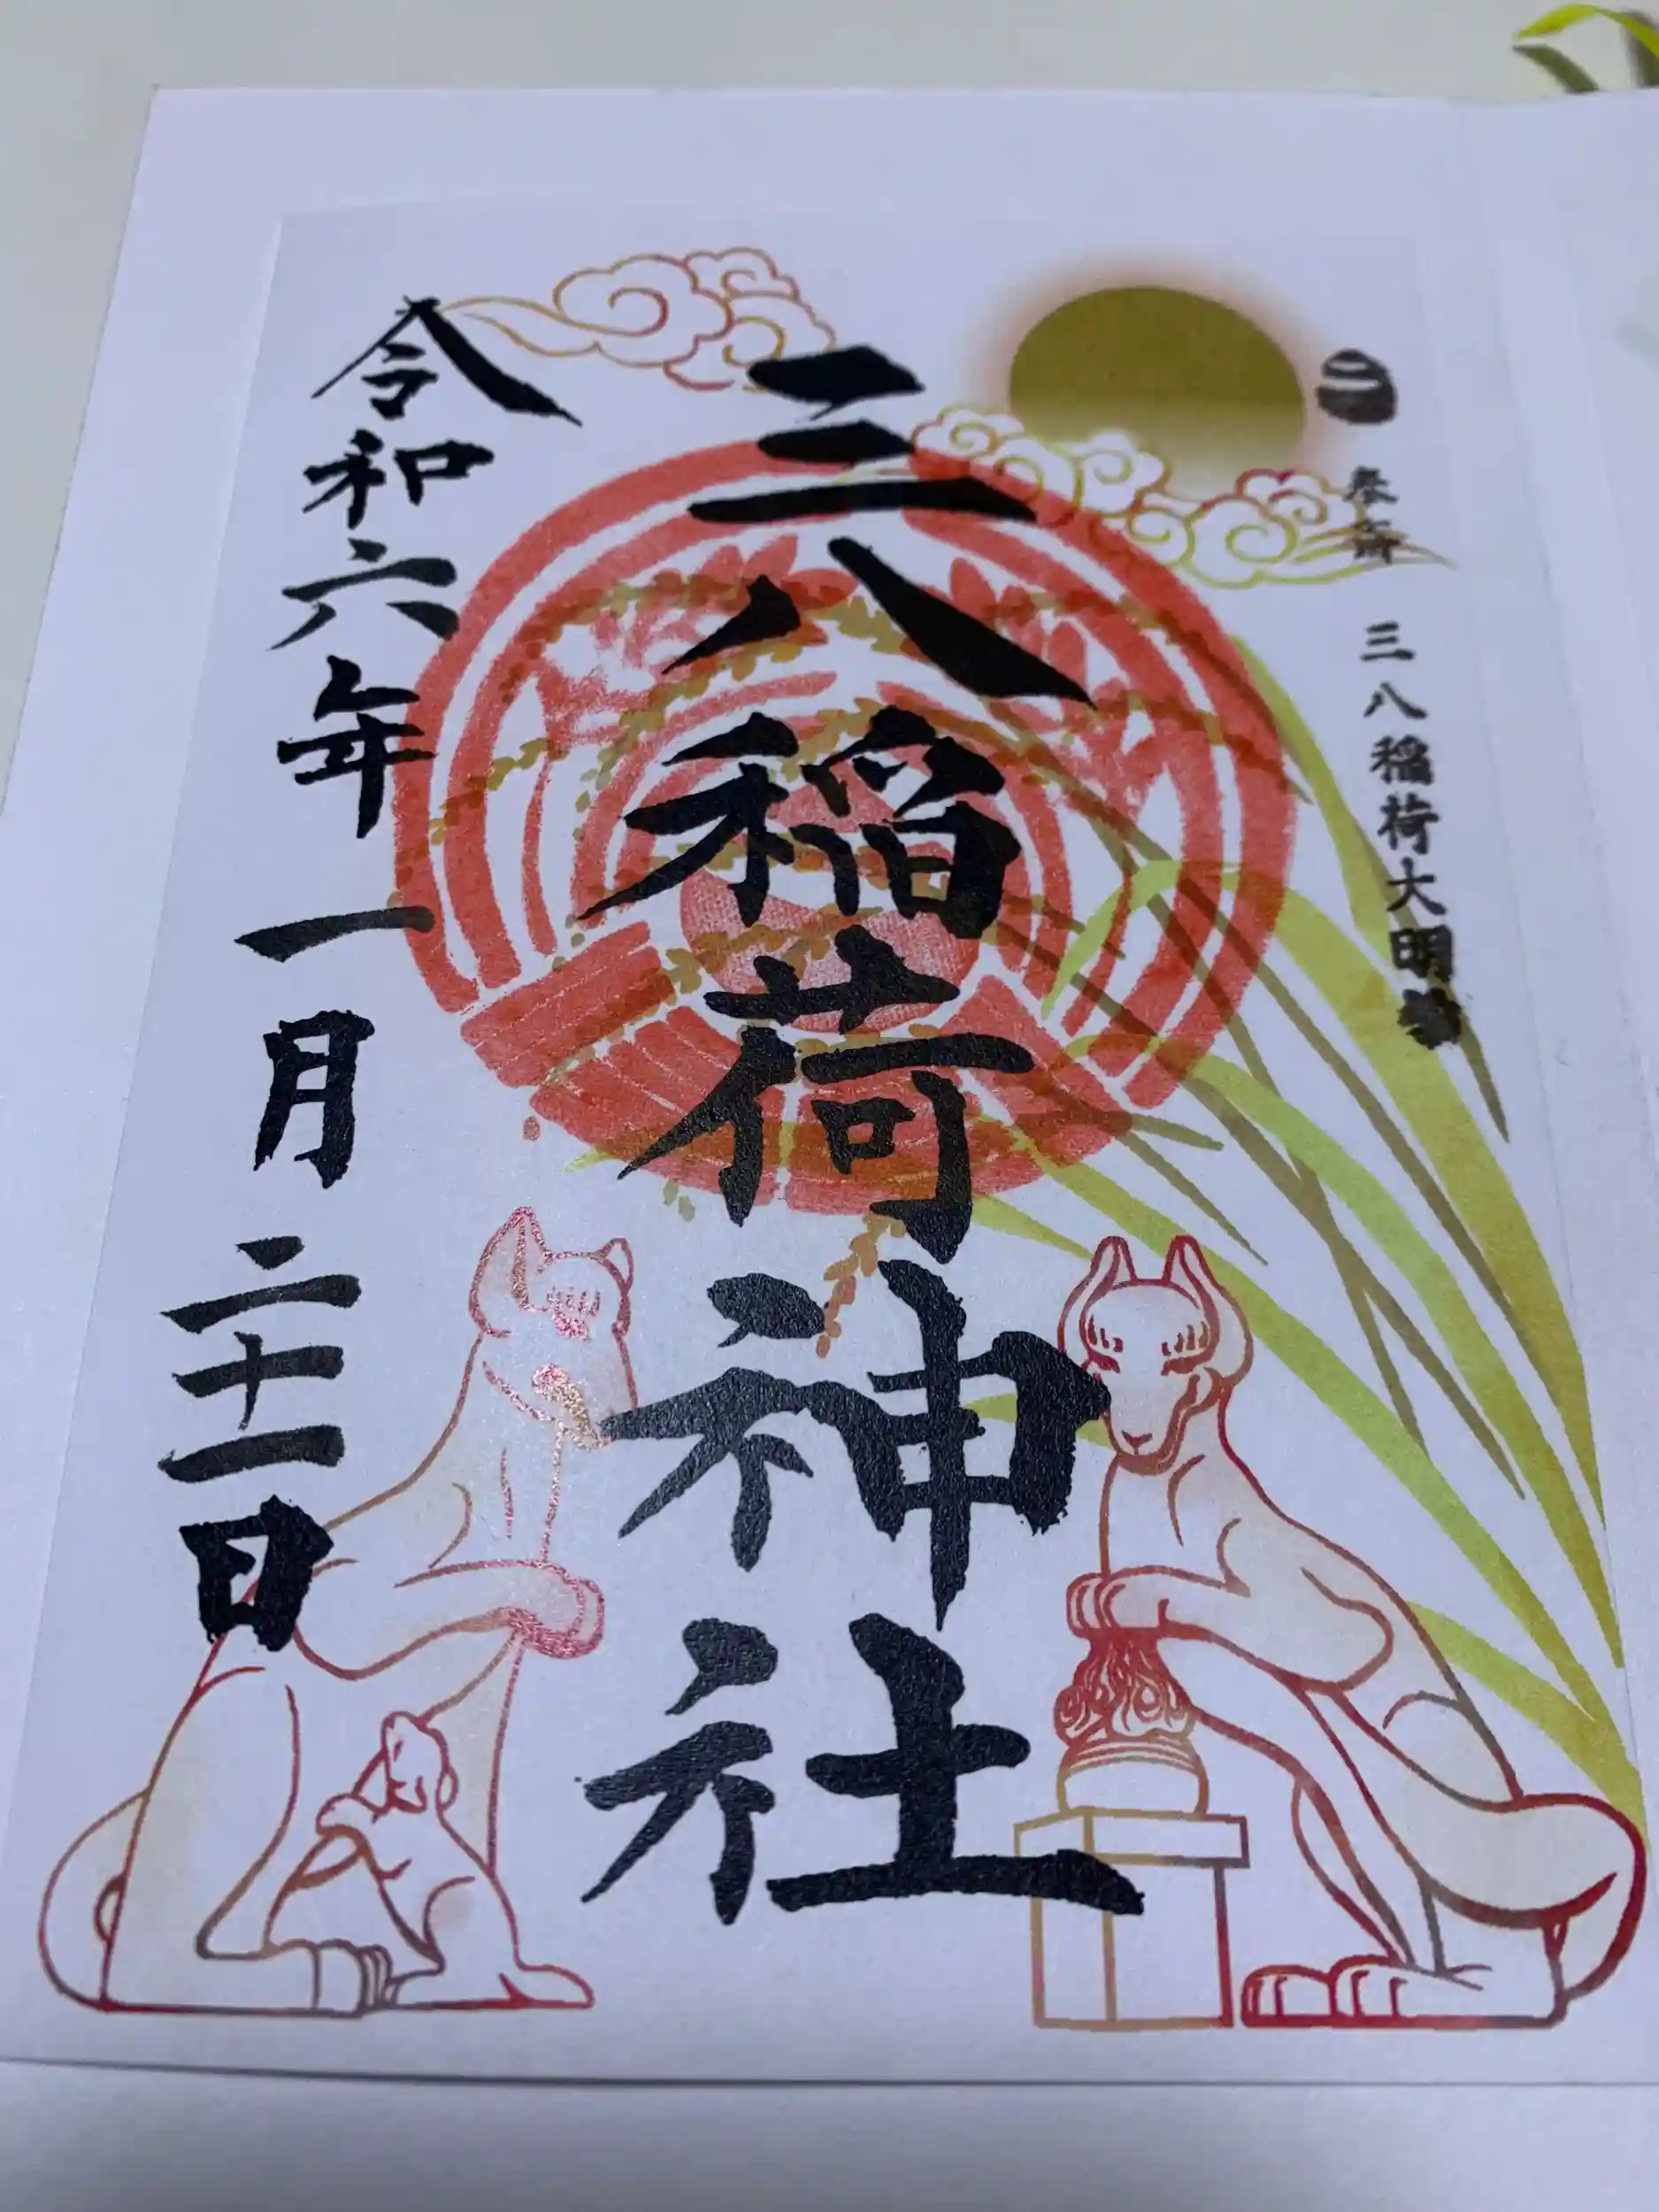 三八稲荷大明神
三八稲荷神社
令和六年一月二十一日